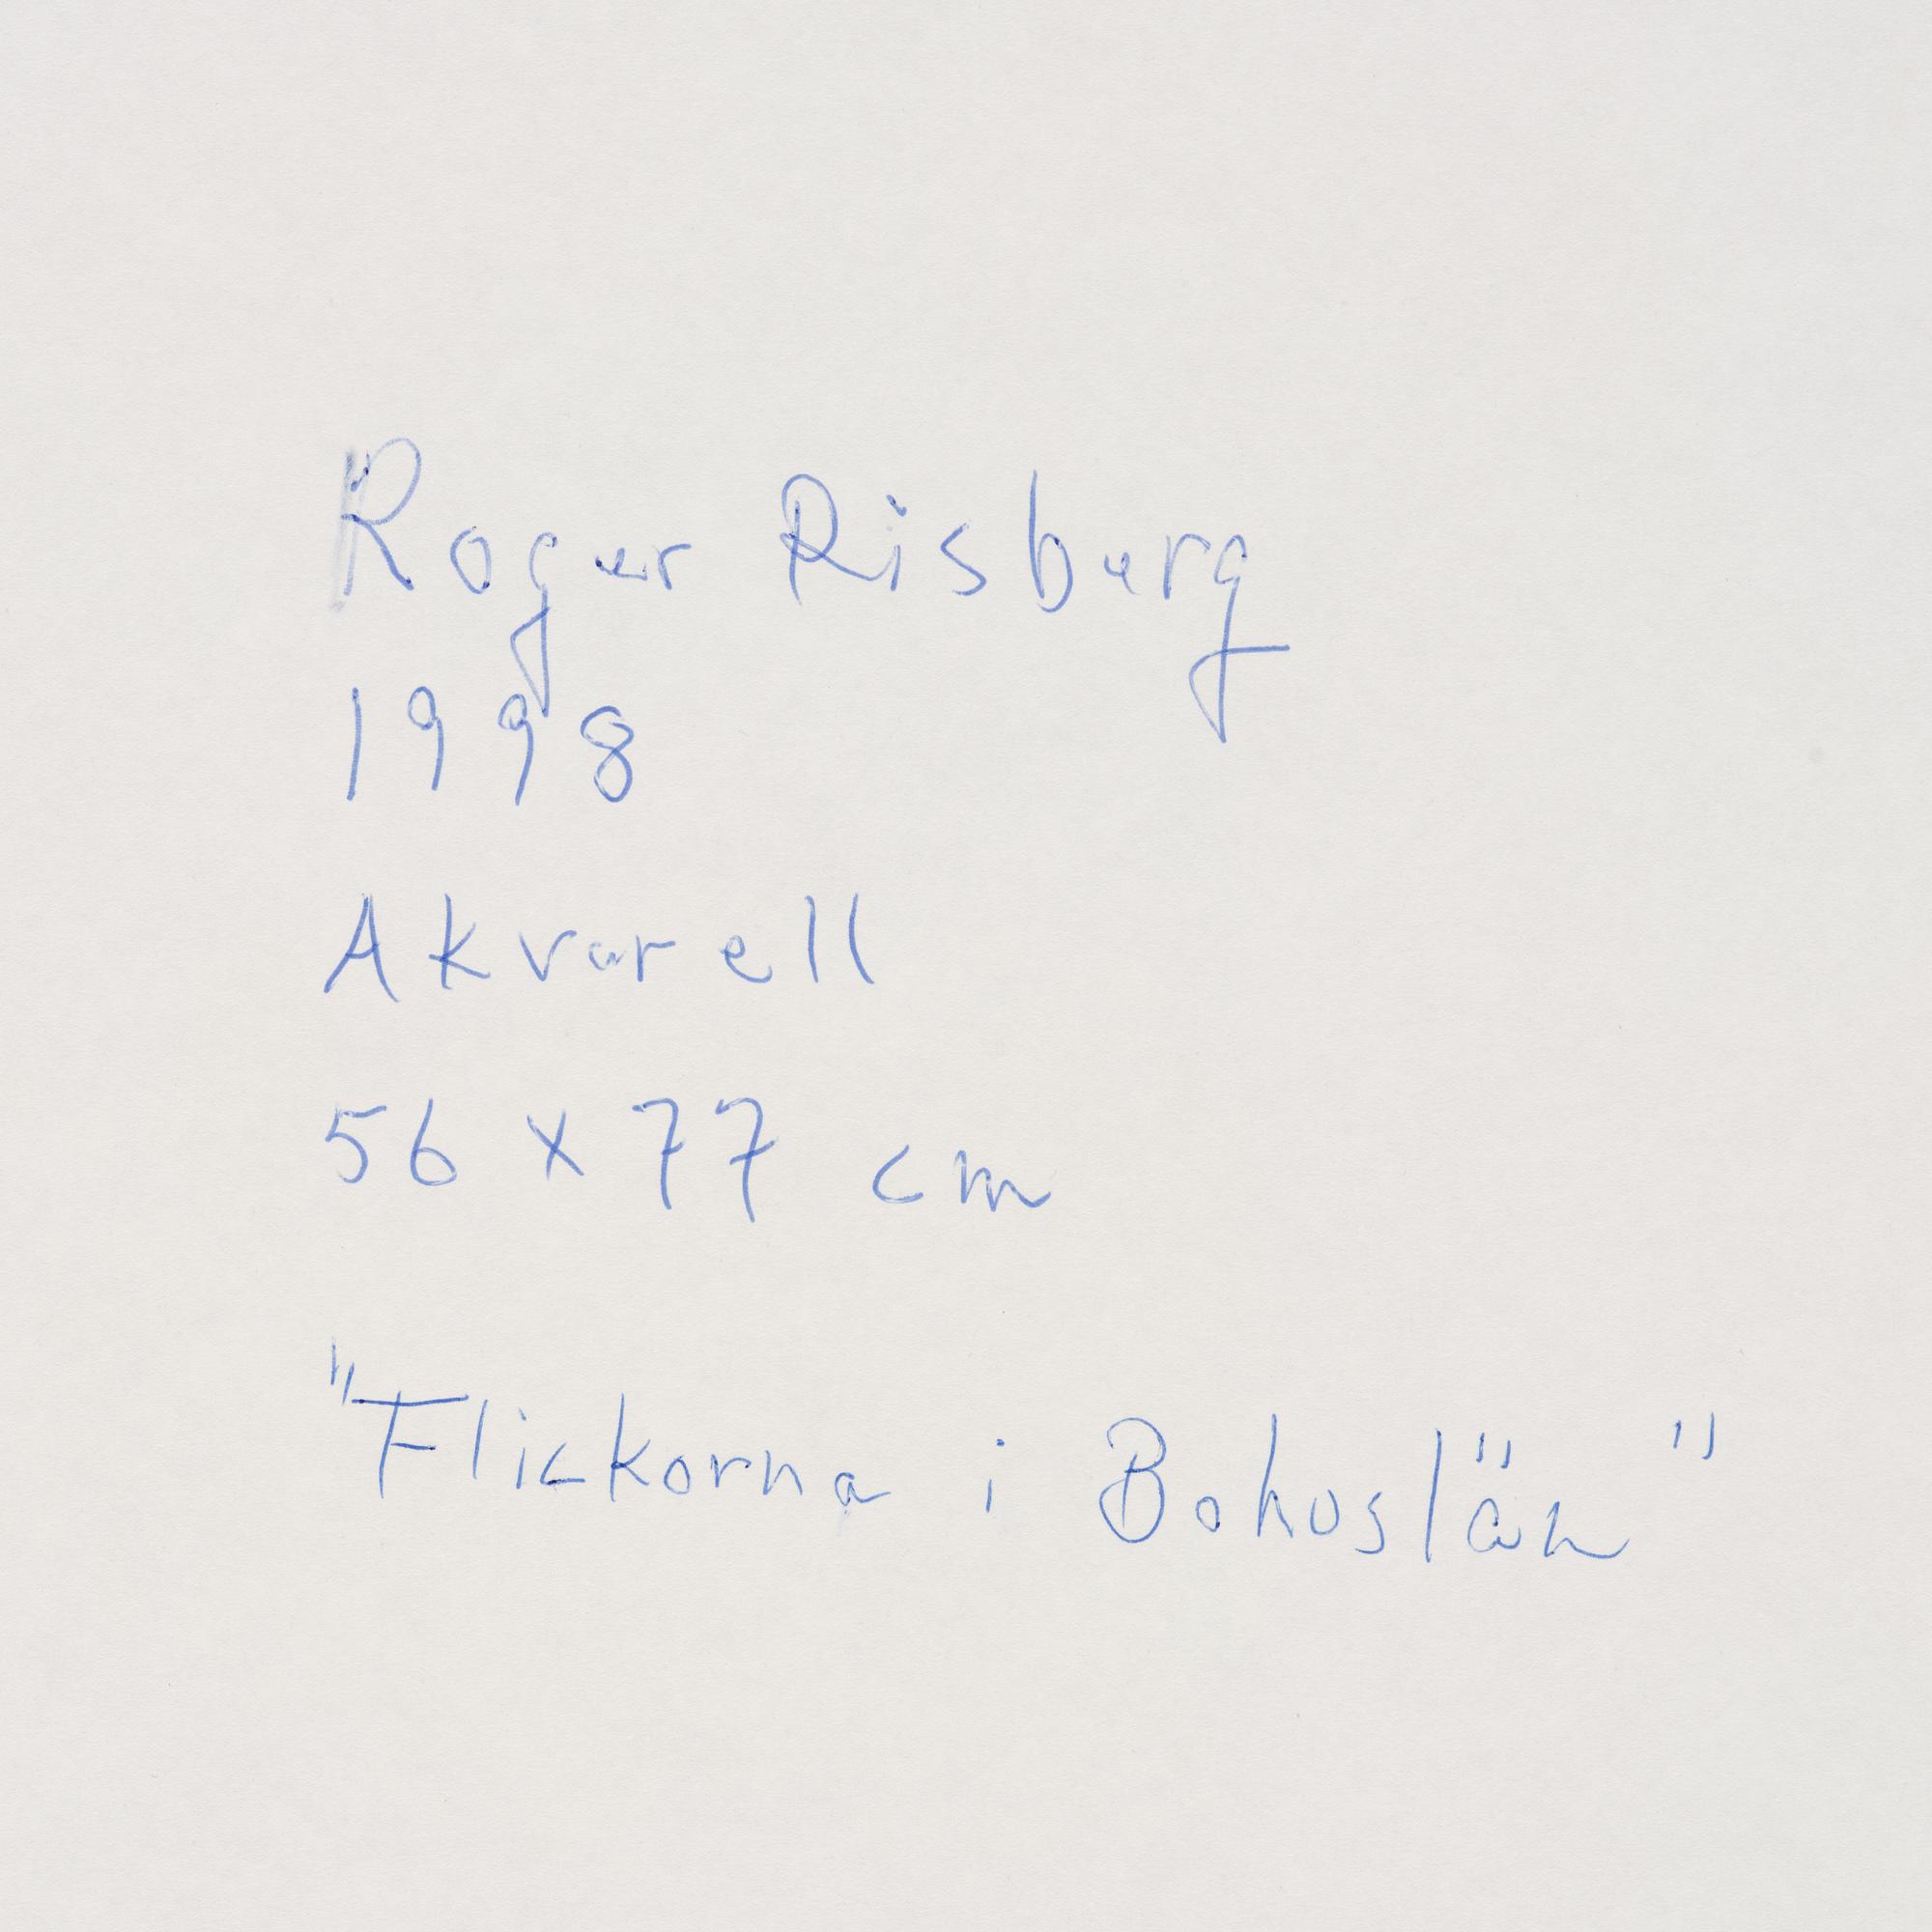 Roger Risberg
1998
Akvarell
56 x 77 cm
"Flickorna i Bohuslän"